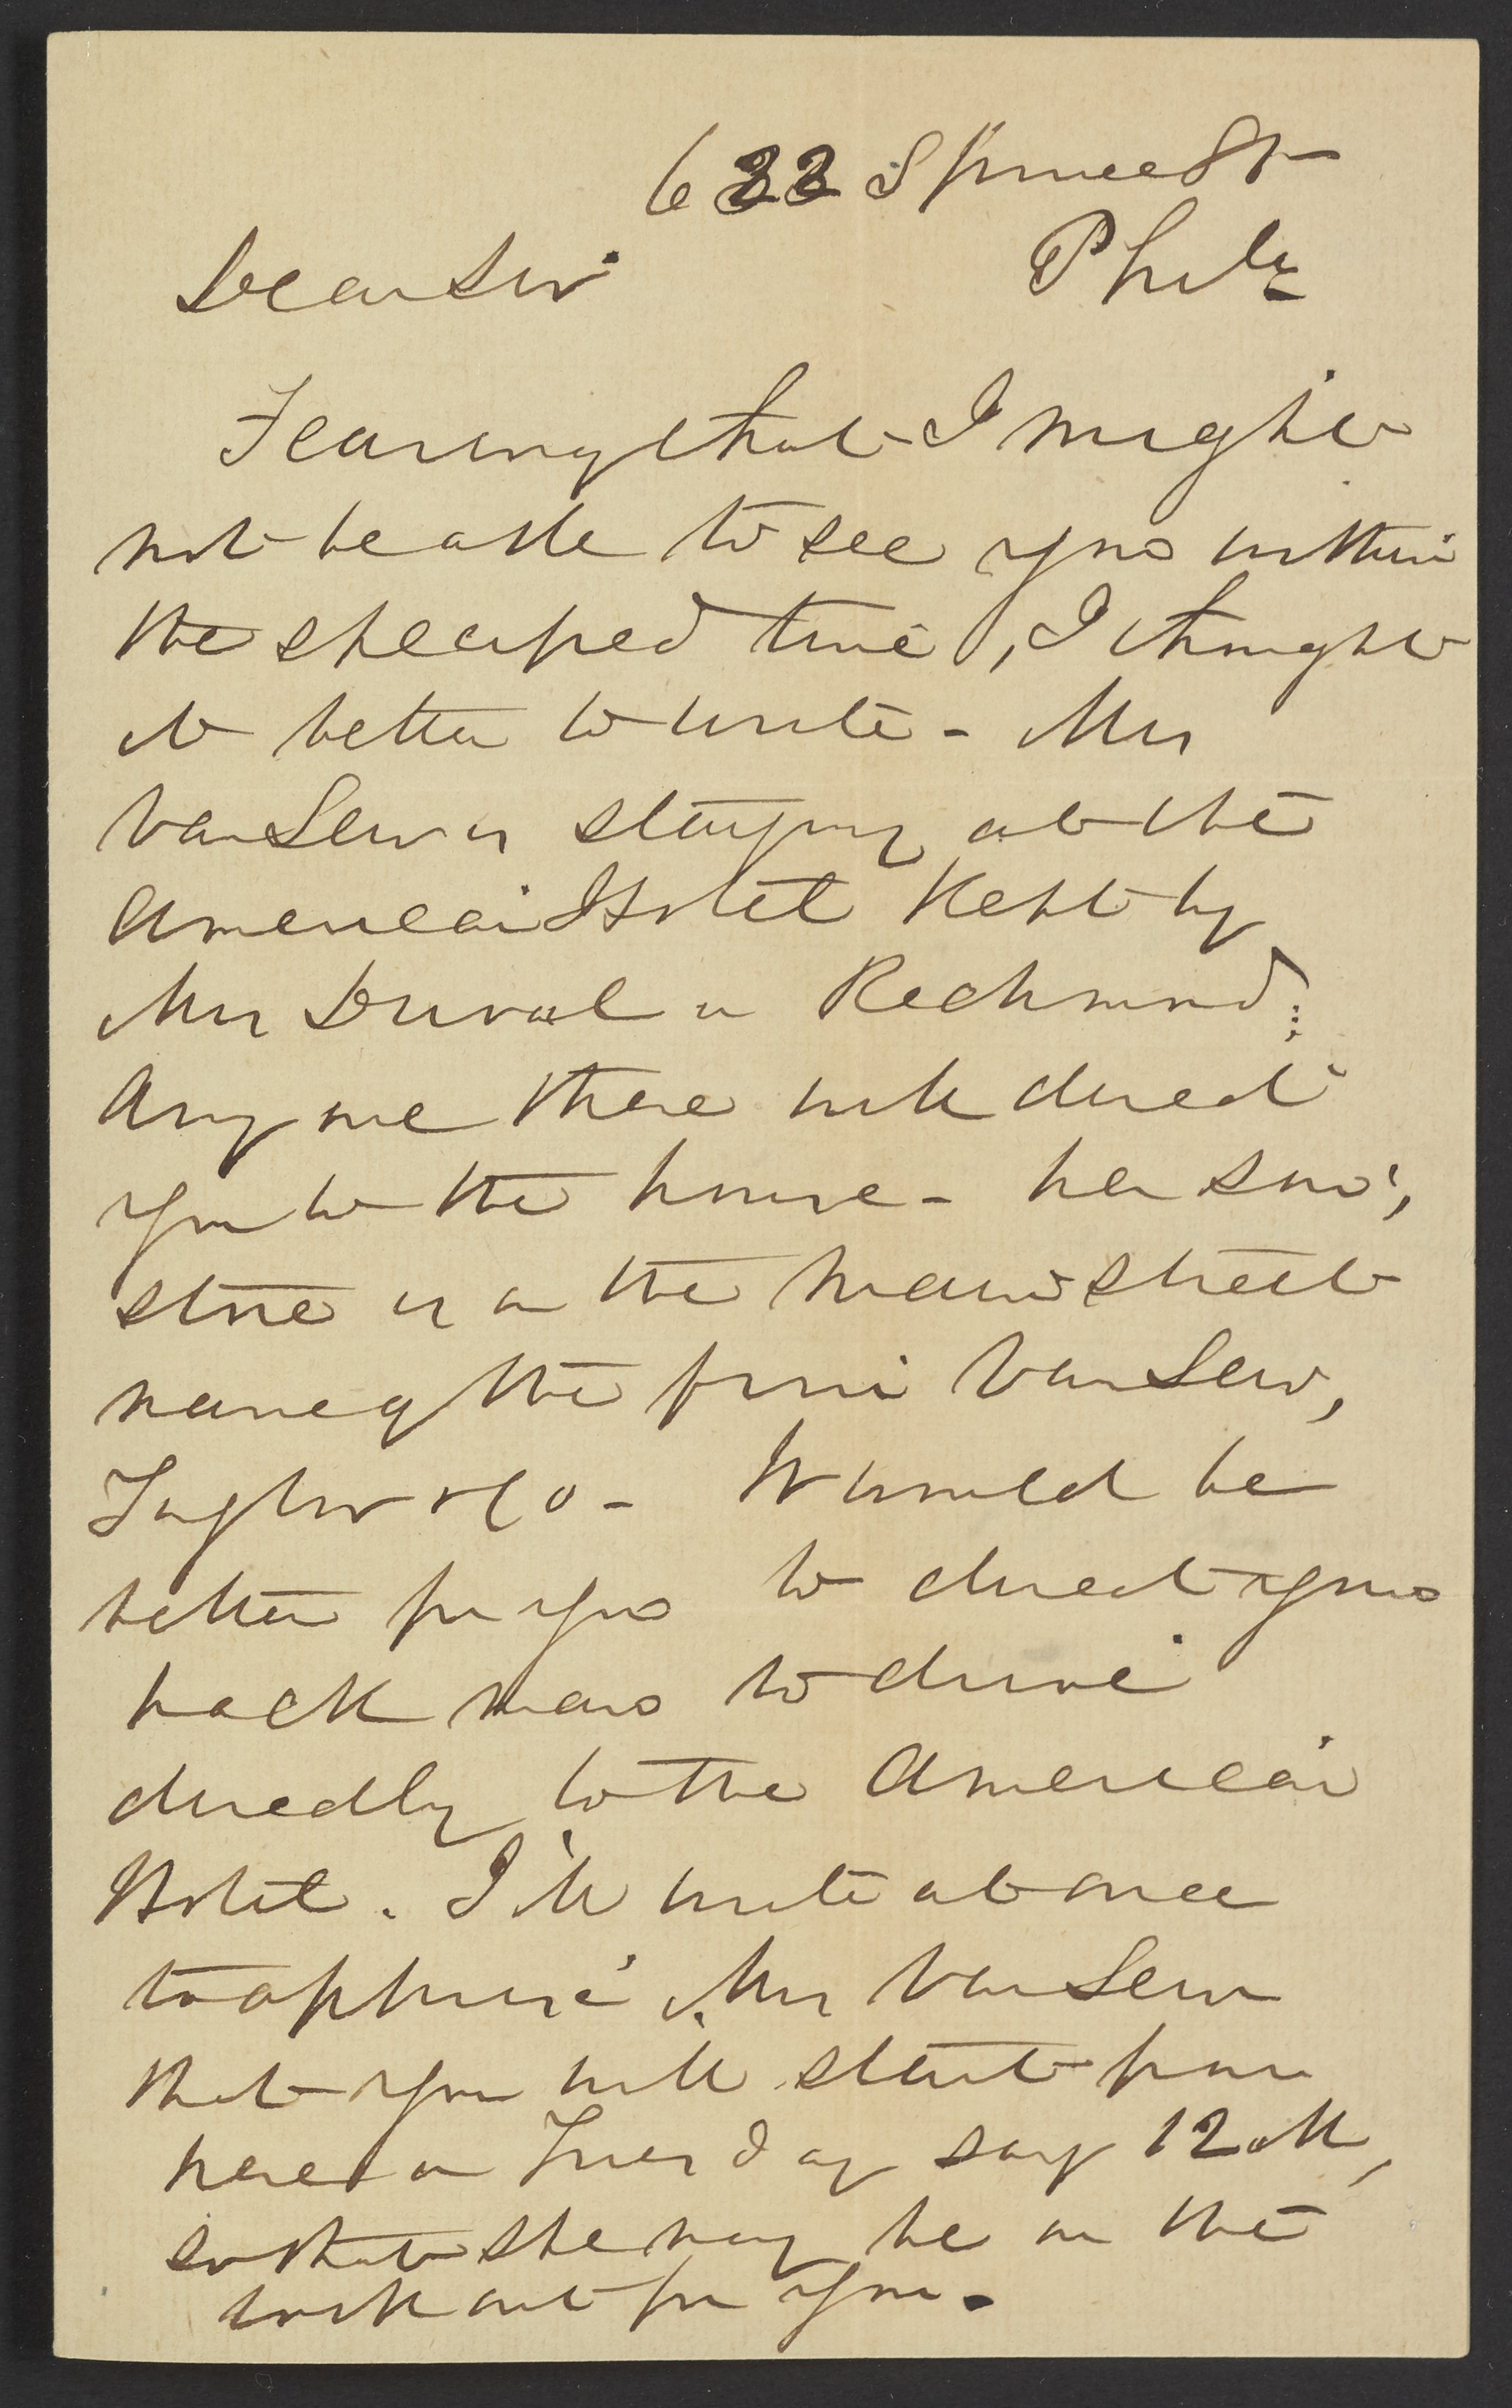 622 Spruce St
Phila
Dear Sir
Fearing that I might
not be able to see you within
the time, I thought
it better to write - Mrs
Van Lew is staying at the
American Hotel Kept by
Mrs Duval in Richmond;
Any one there will direct
you to the house - her son's,
store is on the main street
name of the firm Van Lew,
Taylor & Co - It would be
better for you to direct your
hack man to drive
directly to the American
Hotel. I'll write at once
to apprise Mrs Van Lew
that you will start from
here on Tuesday say 12 M,
so that she may be on the
look out for you.